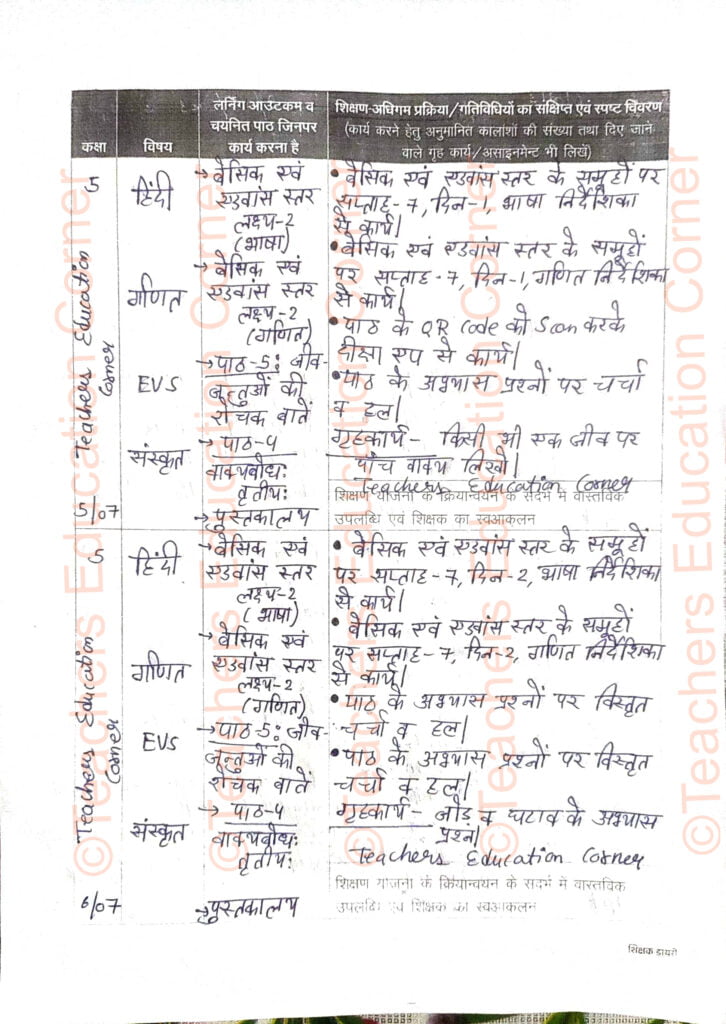 कक्षा
विषय
लर्निंग आउटकम व
चयनित पाठ जिनपर
कार्य करना है
शिक्षण-अधिगम प्रक्रिया/गतिविधियों का संक्षिप्त एवं स्पष्ट विवरण
(कार्य करने हेतु अनुमानित कालांशों की संख्या तथा दिए जाने
वाले गृह कार्य/असाइनमेन्ट भी लिखें)
5
Teachers Education
Corner
5/07
हिंदी
गणित
EVS
संस्कृत
→ बेसिक एवं
एडवांस स्तर
लक्ष्य-2
(भाषा)
→ बेसिक एवं
एडवांस स्तर
लक्ष्य-2
(गणित)
→ पाठ-5: जीव-
जन्तुओं की
रोचक बातें
→ पाठ-4
वाक्यबोधः
तृतीयः
→ पुस्तकालय
• बेसिक एवं एडवांस स्तर के समूहों पर
सप्ताह-7, दिन-1, भाषा निर्देशिका
से कार्य|
• बेसिक एवं एडवांस स्तर के समूहों
पर सप्ताह-7, दिन-1, गणित निर्देशिका
से कार्य|
• पाठ के QR Code को Scan करके
दीक्षा एप से कार्य|
• पाठ के अभ्यास प्रश्नों पर चर्चा
व हल|
गृहकार्य- किसी भी एक जीव पर
पाँच वाक्य लिखो|
Teachers Education Corner
शिक्षण योजना के क्रियान्वयन के संदर्भ में वास्तविक
उपलब्धि एवं शिक्षक का स्वआकलन
5
Teachers Education
Corner
6/07
हिंदी
गणित
EVS
संस्कृत
→ बेसिक एवं
एडवांस स्तर
लक्ष्य-2
(भाषा)
→ बेसिक एवं
एडवांस स्तर
लक्ष्य-2
(गणित)
→ पाठ-5: जीव-
जन्तुओं की
रोचक बातें
→ पाठ-4
वाक्यबोधः
तृतीयः
→ पुस्तकालय
• बेसिक एवं एडवांस स्तर के समूहों
पर सप्ताह-7, दिन-2, भाषा निर्देशिका
से कार्य|
• बेसिक एवं एडवांस स्तर के समूहों
पर सप्ताह-7, दिन-2, गणित निर्देशिका
से कार्य|
• पाठ के अभ्यास प्रश्नों पर विस्तृत
चर्चा व हल|
• पाठ के अभ्यास प्रश्नों पर विस्तृत
चर्चा व हल|
गृहकार्य- जोड़ व घटाव के अभ्यास
प्रश्न|
Teachers Education Corner
शिक्षण योजना के क्रियान्वयन के संदर्भ में वास्तविक
उपलब्धि एवं शिक्षक का स्वआकलन
शिक्षक डायरी
©Teachers Education Corner
©Teachers Education Corner
©Teachers Education Corner
©Teachers Education Corner
©Teachers Education Corner